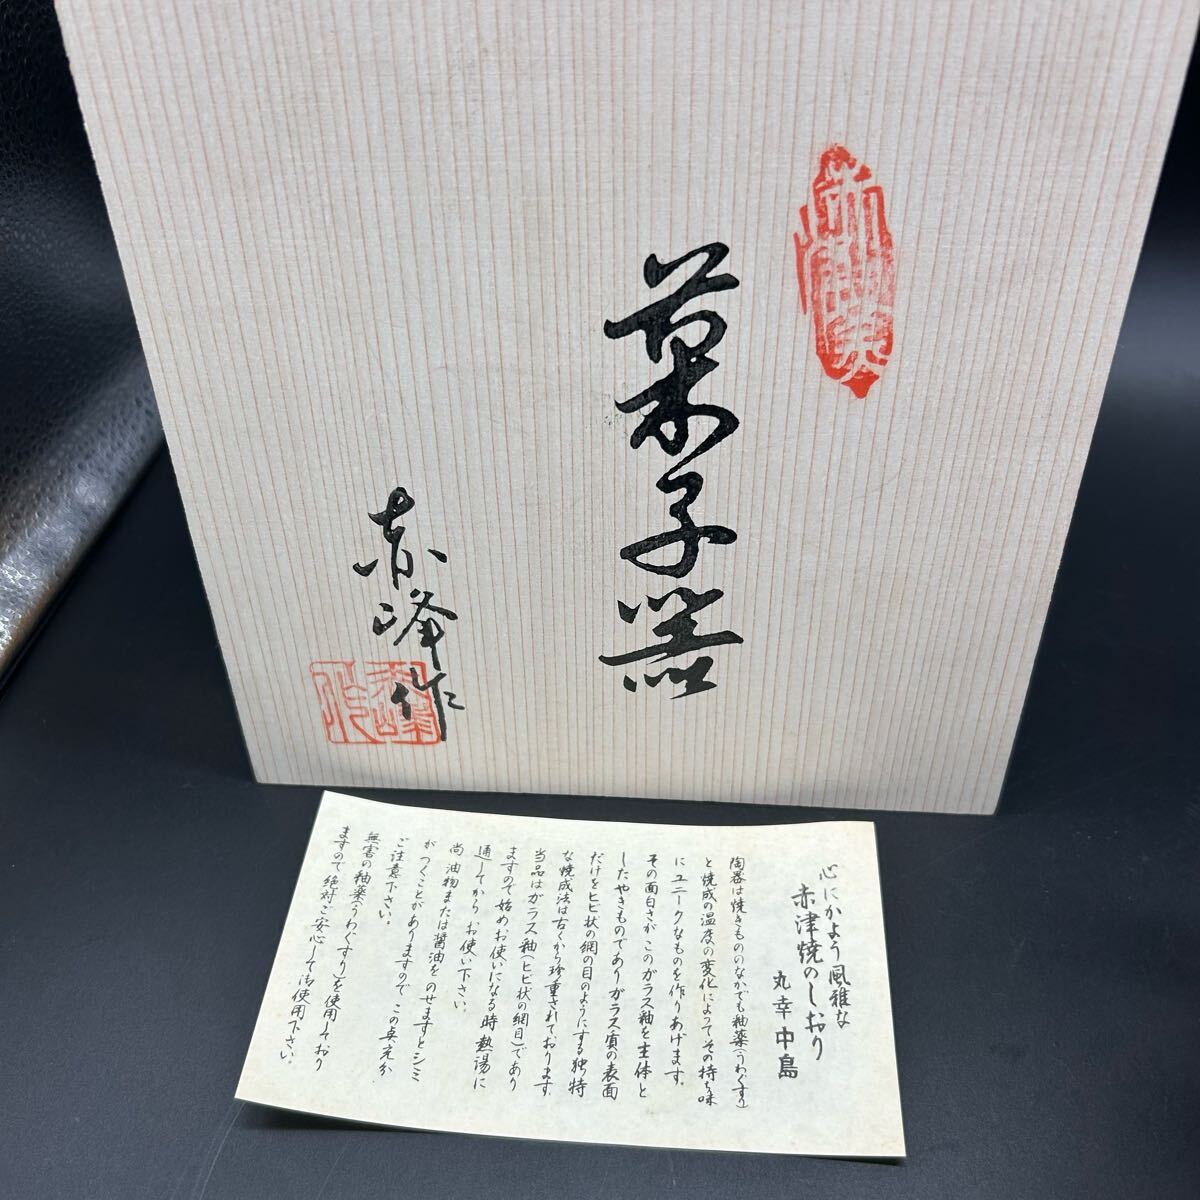 菓子器
赤峰作
心にかよう風雅な
赤津焼のしおり
丸幸中島
陶器は焼きもののなかでも釉薬(うわぐすり)
と焼成の温度の変化によってその持ち味
にユニークなものを作りあげます。
その面白さがこのガラス釉を主体と
したやきものでありガラス質の表面
だけをヒビ状の網の目のようにする独特
な焼成法は古くから珍重されております。
当品はガラス釉(ヒビ状の網目)であり
ますので始めお使いになる時熱湯に
通してからお使い下さい。
尚油物または醤油をのせますとシミ
がつくことがありますのでこの点充分
ご注意下さい。
無害の釉薬(うわぐすり)を使用しており
ますので絶対ご安心して御使用下さい。